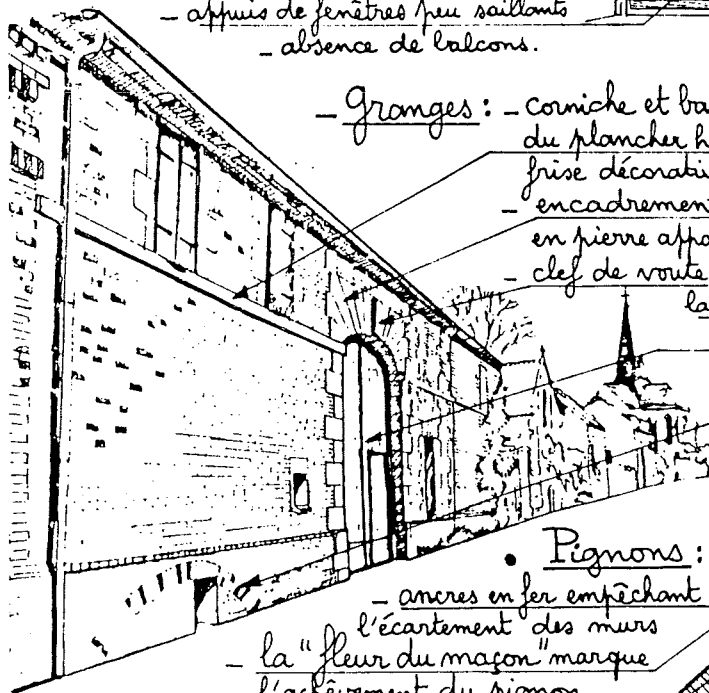 - appuis de fenêtres peu saillants
- absence de balcons.
- Granges : - corniche et ba
du plancher h
frise décorati
- encadrement
en pierre appa
- clef de voute
la
• Pignons :
- ancres en fer empêchant
l'écartement des murs
- la "fleur du maçon" marque
l'achèvement du pignon